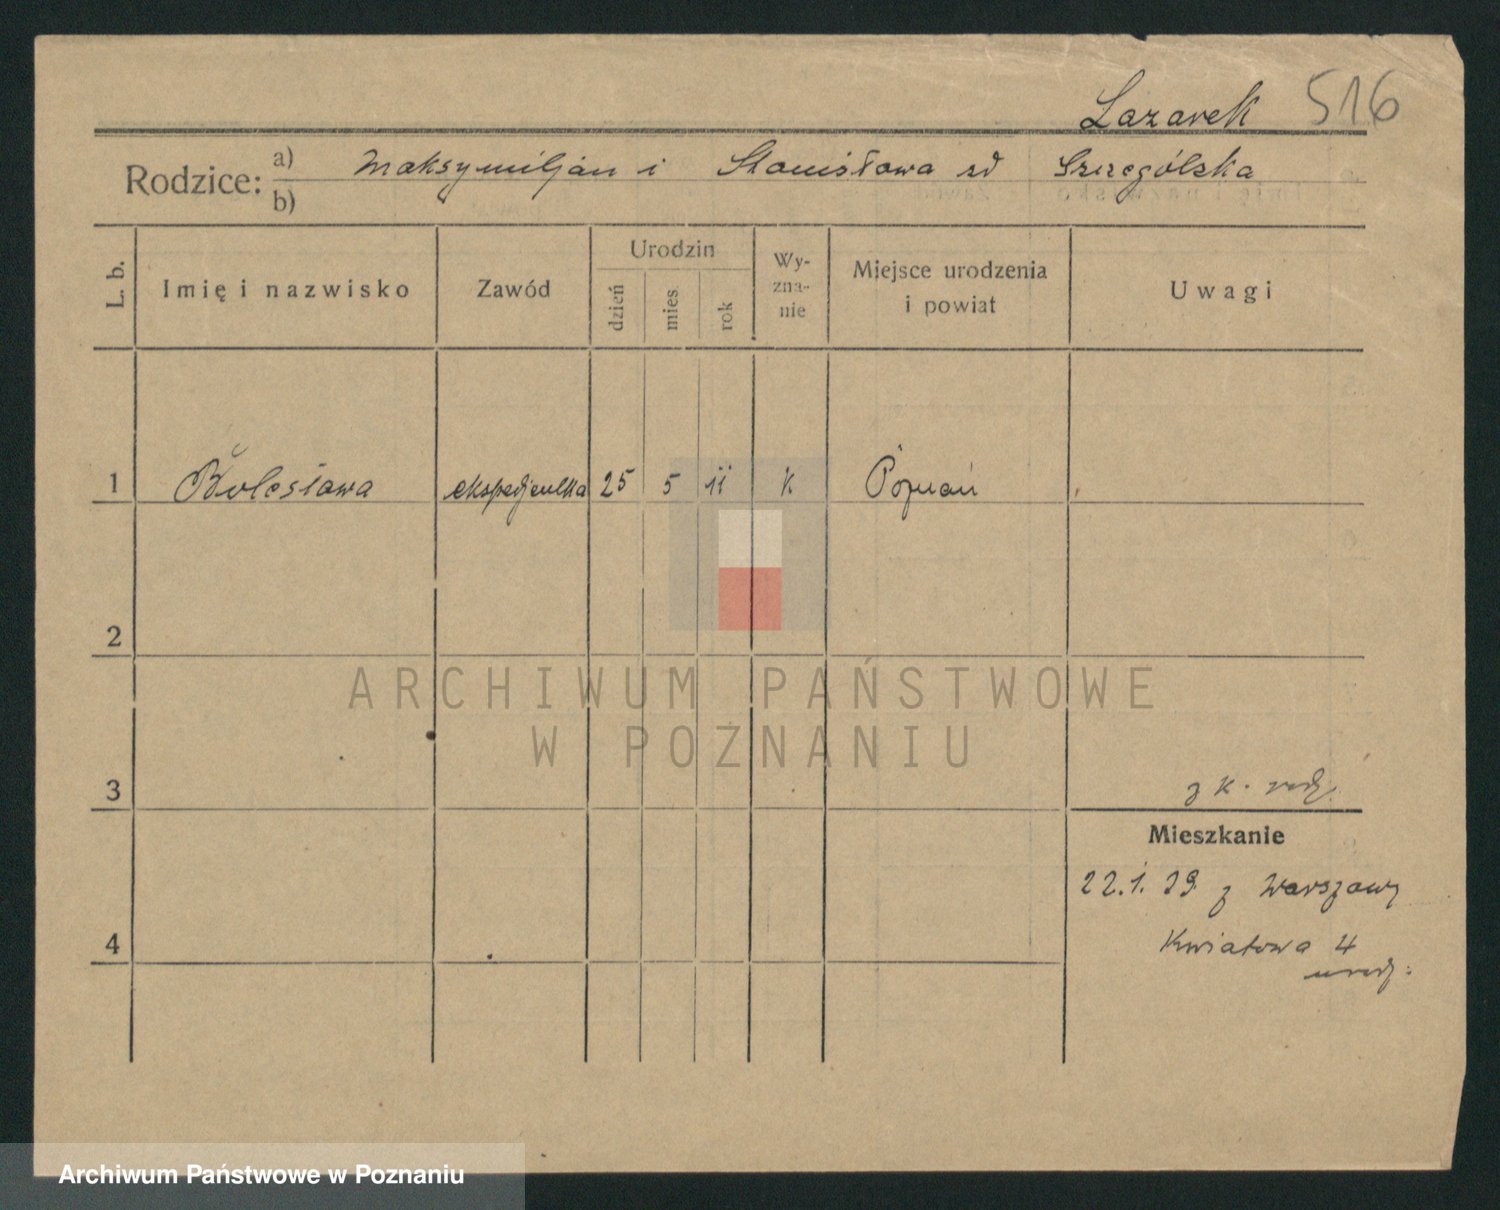 Lazarek 516
Rodzice: a) Maksymiljan i Stanisława zd Szczególska
b)
L. b. Imię i nazwisko Zawód Urodzin dzień mies rok Wy-zna-nie Miejsce urodzenia i powiat Uwagi
1 Bolesława ekspedjentka 25 5 11 K Poznań
2
ARCHIWUM PAŃSTWOWE
W POZNANIU
3
z k. rodz.
Mieszkanie
22.1.39 z Warszawy
4
Kwiatowa 4
Archiwum Państwowe w Poznaniu